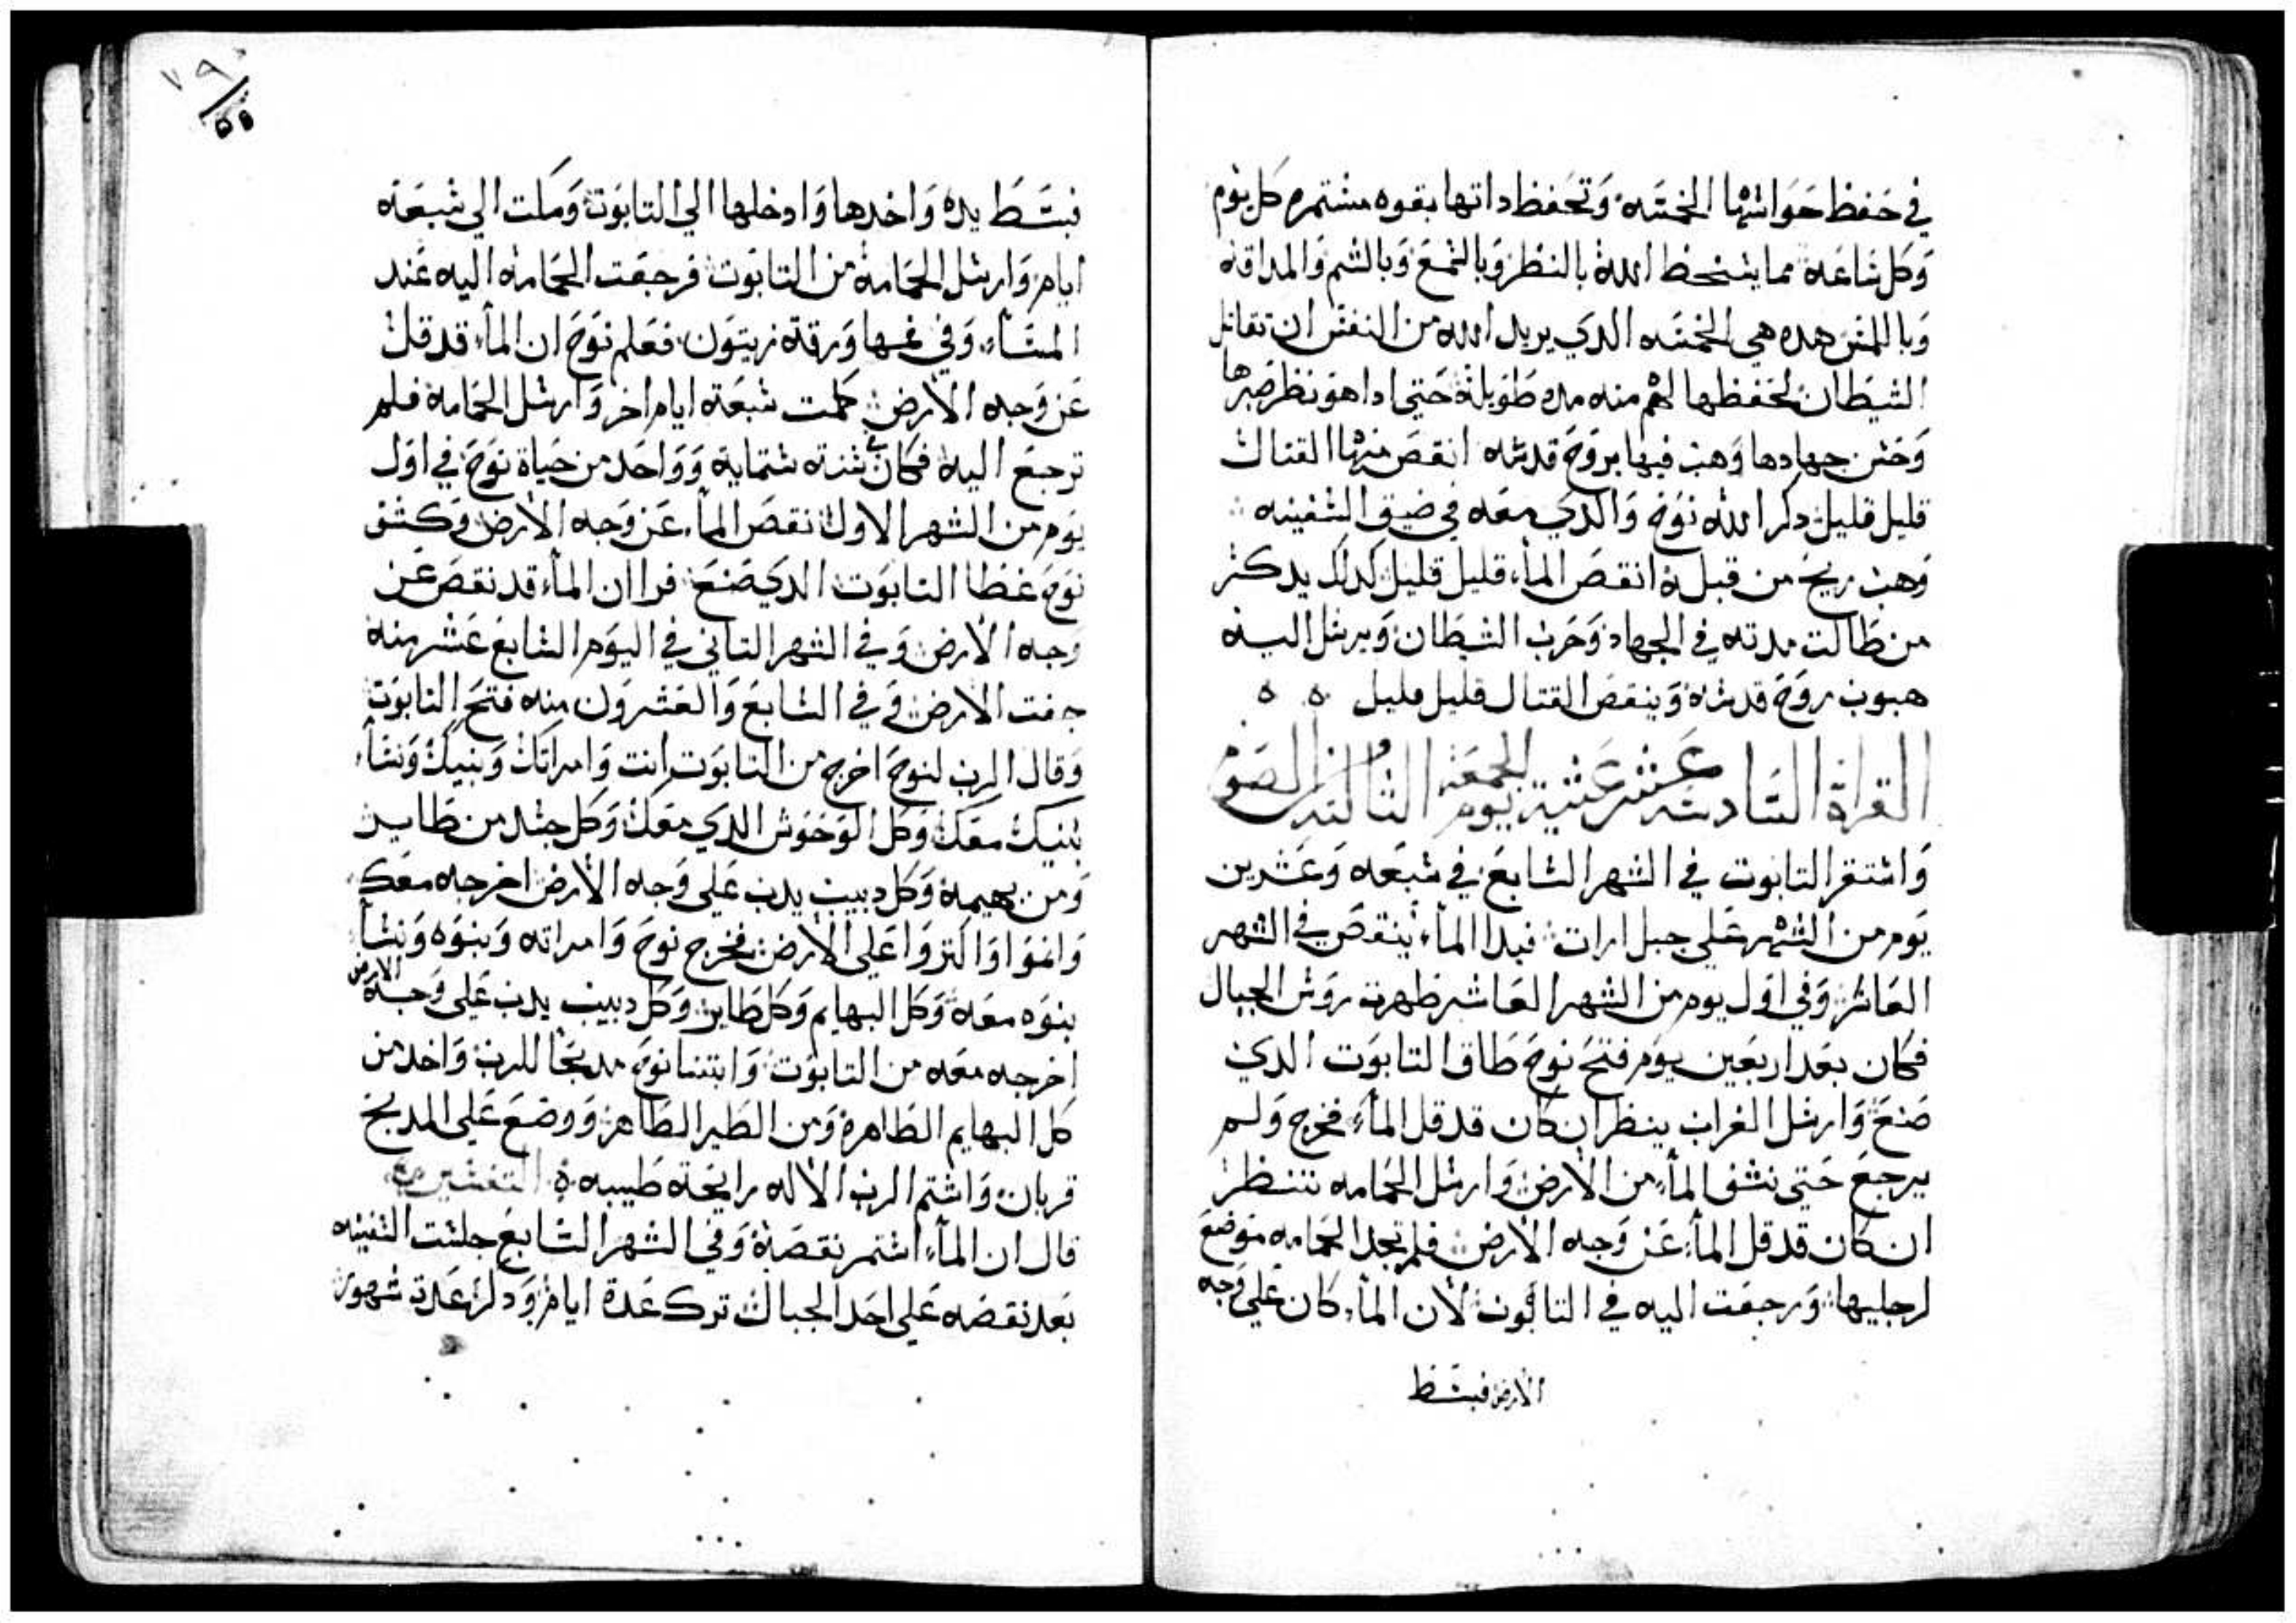 في حفظ حواسها الخمسه وتحفظ داتها بقوه مستمره كل يوم
وكل ساعه مما يسخط الله بالنظر وبالسمع وبالشم والمداقه
وباللمس هده هي الخمسه الدي يريد الله من النفس ان تقاتل
الشيطان لحفظها لهم منه مده طويلة حتي ادا هو نظر صبرها
وحسن جهادها وهب فيها بروح قدسه انقص منها القتال
قليل قليل دكر الله نوح والدي معه في ضيق السفينه
وهب ريح من قبله انقص الماء قليل قليل كدلك يدكر
من طالت مدته في الجهاد وحرب الشيطان ويرسل اليه
هبوب روح قدسه وينقص القتال قليل قليل ه ه
القراة السادسه عشر عشية يوم الجمعة الثالثه من الصوم
واستقر التابوت في الشهر السابع في سبعه وعشرين
يوم من الشهر علي جبل ارات فبدا الماء ينقص في الشهر
العاشر وفي اول يوم من الشهر العاشر ظهرت روس الجبال
فكان بعد اربعين يوم فتح نوح طاق التابوت الدي
صنع وارسل الغراب ينظر ان كان قد قل الماء فخرج ولم
يرجع حتي نشف الماء من الارض وارسل الحمامه تنظر
ان كان قد قل الماء عن وجه الارض فلم تجد الحمامه موضع
لرجليها ورجعت اليه في التابوت لان الماء كان علي وجه
الارض فبسط
٧٩
٥٥
فبسط يده واخدها وادخلها الي التابوت وكملت الي سبعه
ايام وارسل الحمامة من التابوت فرجعت الحمامه اليه عند
المساء وفي فمها ورقة زيتون فعلم نوح ان الماء قد قل
عن وجه الارض كملت سبعة ايام اخر وارسل الحمامة فلم
ترجع اليه فكان في سنه ستماية وواحد من حياة نوح في اول
يوم من الشهر الاول نقص الماء عن وجه الارض وكشف
نوح غطا التابوت الدي صنع فراا ان الماء قد نقص عن
وجه الارض وفي الشهر التاني في اليوم السابع عشر منه
جفت الارض وفي السابع والعشرون منه فتح التابوت
وقال الرب لنوح اخرج من التابوت انت وامراتك وبنيك ونساء
بنيك معك وكل الوحوش الدي معك وكل جسد من طاير
ومن بهيمة وكل دبيب يدب علي وجه الارض اخرجه معك
وانموا واكتروا علي الارض فخرج نوح وامراته وبنوه ونساء
بنوه معه وكل البهايم وكل طاير وكل دبيب يدب علي وجه الارض
اخرجه معه من التابوت وابتنا نوح مدبحا للرب واخد من
كل البهايم الطاهرة ومن الطير الطاهر ووضع علي المدبح
قربان واشتم الرب الاله رايحة طيبه ه التفسير
قال ان الماء استمر نقصة وفي الشهر السابع جلست السفينه
بعد نقصه علي احد الجبال ترك عدة ايام ودكر عدة شهور